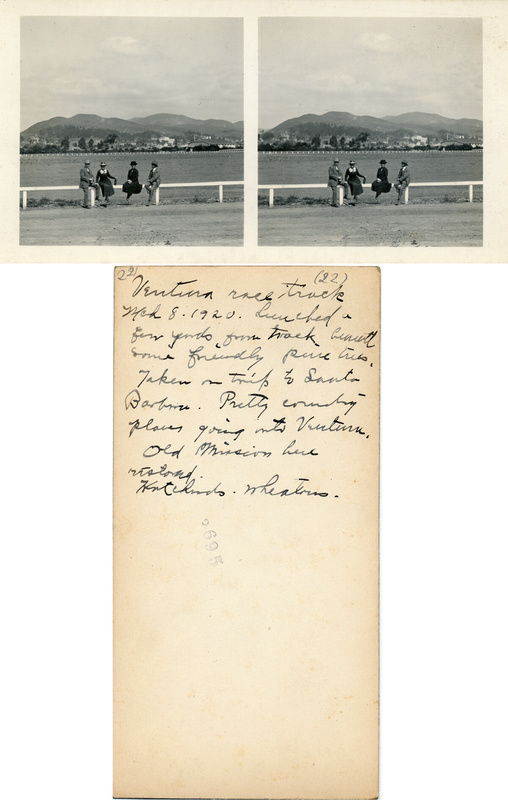 22 (22)
Ventura race track
Mch 8. 1920. Lunched a
few yards from track beneath
some friendly pine trees.
Taken on trip to Santa
Barbara. Pretty country
places going into Ventura.
Old Mission here
restored.
Wheatons.
2695